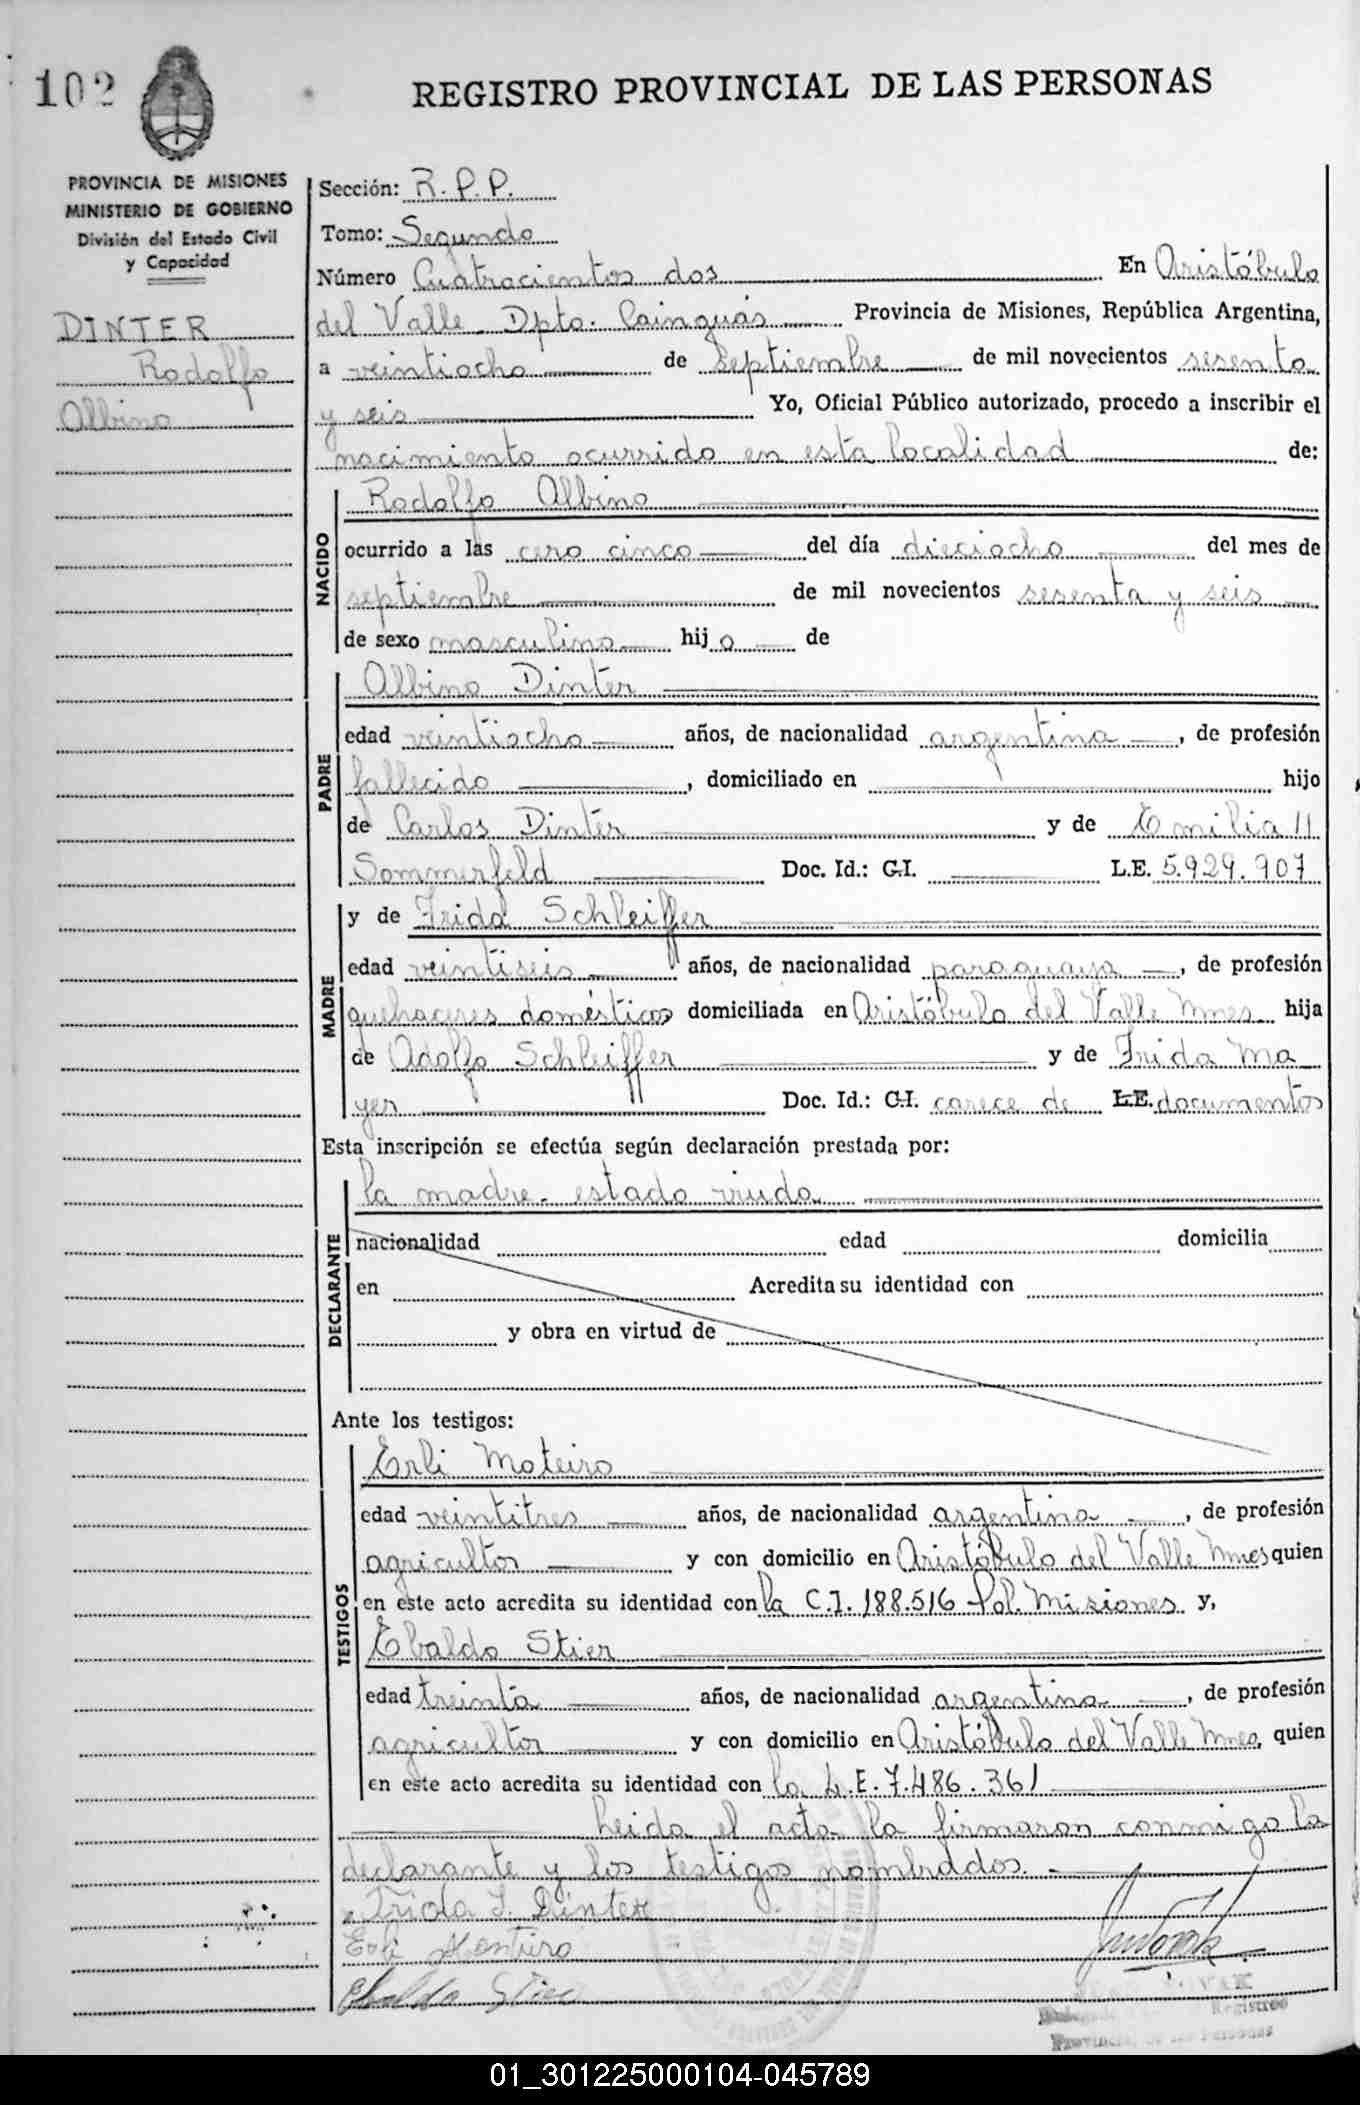 102
REGISTRO PROVINCIAL DE LAS PERSONAS
PROVINCIA DE MISIONES
MINISTERIO DE GOBIERNO
División del Estado Civil
y Capacidad
DINTER
Rodolfo
Albino
Sección: R.P.P.
Tomo: Segundo
Número Cuatrocientos dos En Aristóbulo
del Valle Dpto. Cainguás Provincia de Misiones, República Argentina,
a veintiocho de septiembre de mil novecientos sesenta
y seis Yo, Oficial Público autorizado, procedo a inscribir el
nacimiento ocurrido en esta localidad de:
NACIDO
Rodolfo Albino
ocurrido a las cero cinco del día dieciocho del mes de
septiembre de mil novecientos sesenta y seis
de sexo masculino hij o de
PADRE
Albino Dinter
edad veintiocho años, de nacionalidad argentina, de profesión
fallecido, domiciliado en hijo
de Carlos Dinter y de Emilia
Sommerfeld Doc. Id.: C.I. L.E. 5.929.907
MADRE
y de Frida Schleiffer
edad veintiseis años, de nacionalidad paraguaya, de profesión
quehaceres domésticos domiciliada en Aristóbulo del Valle Mnes hija
de Adolfo Schleiffer y de Frida Ma
yer Doc. Id.: C.I. carece de L.E. documentos
Esta inscripción se efectúa según declaración prestada por:
DECLARANTE
la madre. estado viuda
nacionalidad edad domicilia
en Acredita su identidad con
y obra en virtud de
Ante los testigos:
TESTIGOS
Erli Moteiro
edad veintitres años, de nacionalidad argentina, de profesión
agricultor y con domicilio en Aristóbulo del Valle Mnes quien
en este acto acredita su identidad con la C.I. 188.516 Pol. Misiones y,
Ebaldo Stier
edad treinta años, de nacionalidad argentina, de profesión
agricultor y con domicilio en Aristóbulo del Valle Mnes, quien
en este acto acredita su identidad con la L.E. 7.486.361
Leida el acta la firmaron conmigo la
declarante y los testigos nombrados.
Frida S. Dinter
Erli
Ebaldo Stier
Registro
Provincial de las Personas
01_301225000104-045789